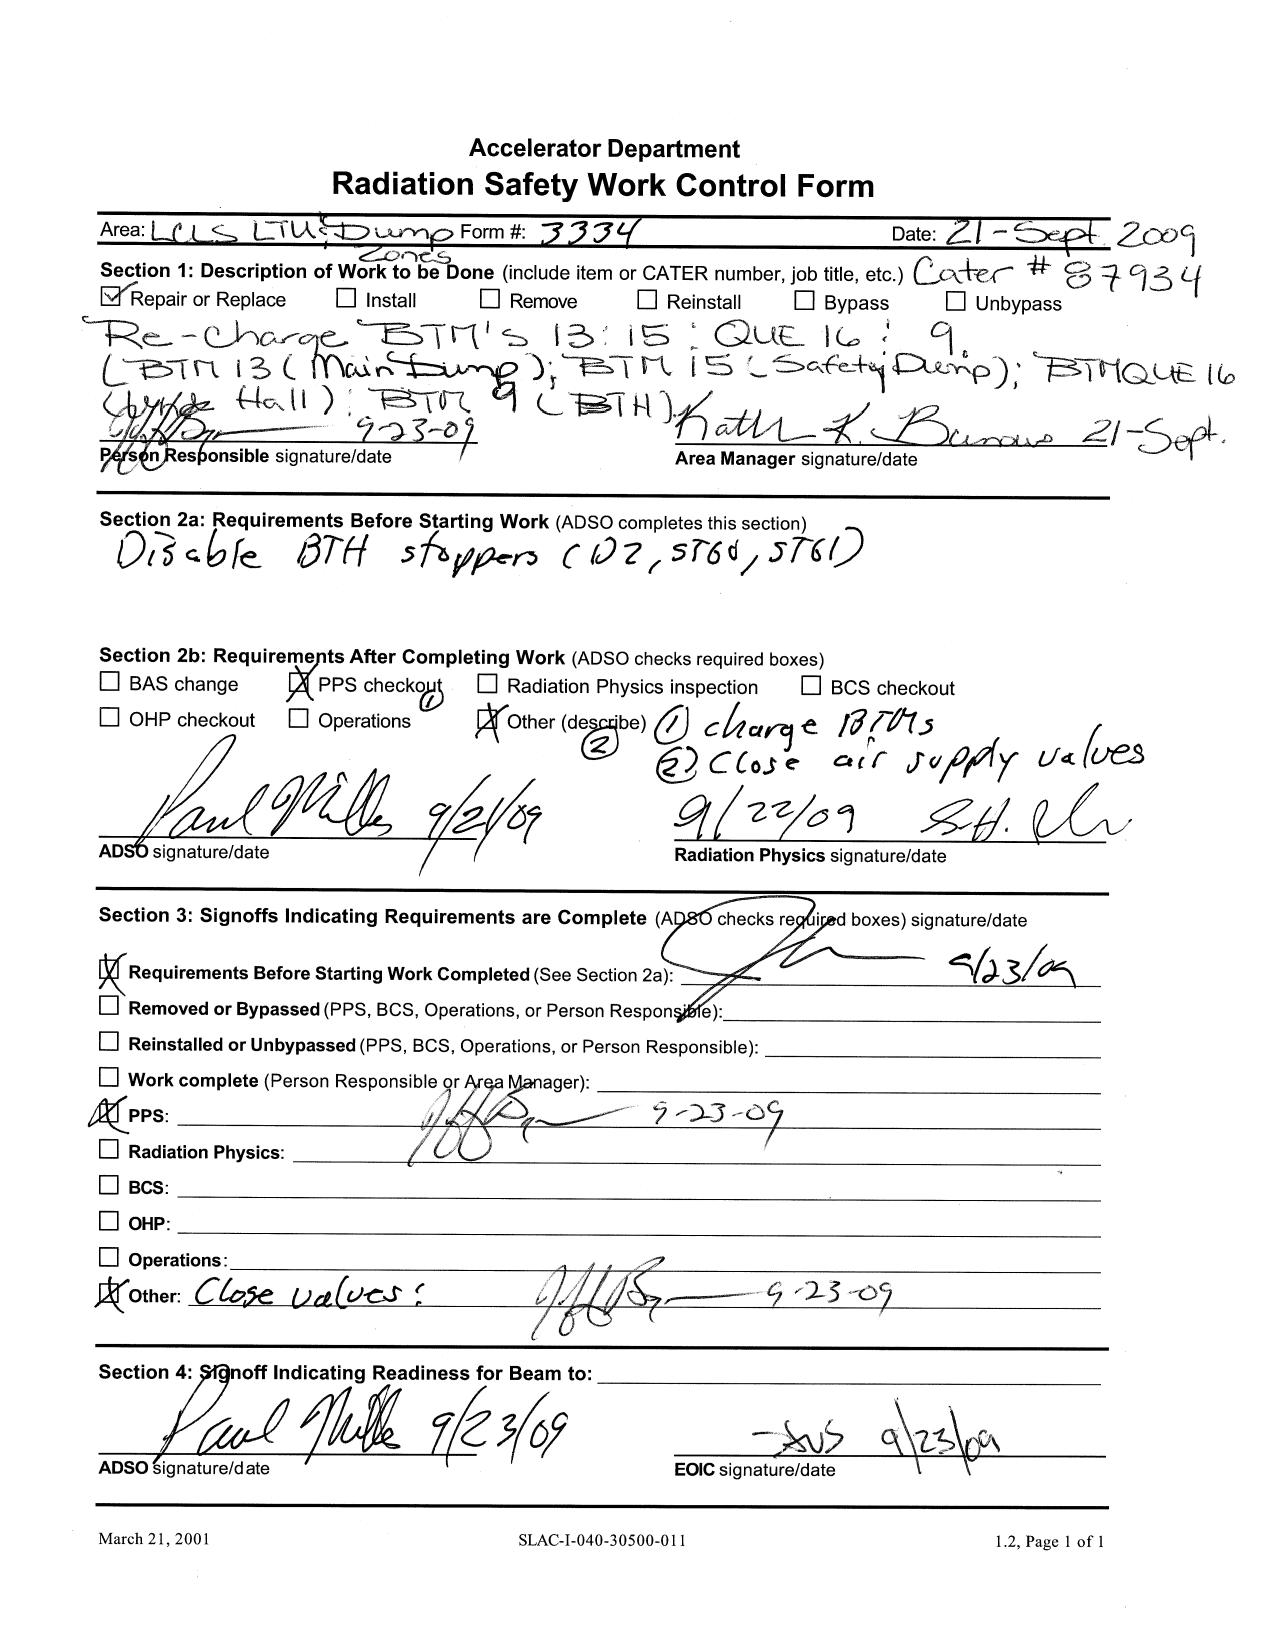 Accelerator Department
Radiation Safety Work Control Form
Area: LCLS LTU & Dump Zones Form #: 3334 Date: 21-Sept 2009
Section 1: Description of Work to be Done (include item or CATER number, job title, etc.) Cater # 87934
Repair or Replace Install Remove Reinstall Bypass Unbypass
Re-Charge BTM's 13 & 15 & QUE 16 & 9.
(BTM 13 (Main Dump); BTM 15 (Safety Dump); BTMQUE 16
Hall) & BTM 9 (BTH).
9-23-09 Kath K. Burrows 21-Sept.
Person Responsible signature/date Area Manager signature/date
Section 2a: Requirements Before Starting Work (ADSO completes this section)
Disable BTH stoppers (D2, ST60, ST61)
Section 2b: Requirements After Completing Work (ADSO checks required boxes)
BAS change PPS checkout ① Radiation Physics inspection BCS checkout
OHP checkout Operations Other (describe) ② ① charge BTMs
② Close air supply valves
Paul Miller 9/21/09 9/22/09 S.H.
ADSO signature/date Radiation Physics signature/date
Section 3: Signoffs Indicating Requirements are Complete (ADSO checks required boxes) signature/date
Requirements Before Starting Work Completed (See Section 2a): 9/23/09
Removed or Bypassed (PPS, BCS, Operations, or Person Responsible):
Reinstalled or Unbypassed (PPS, BCS, Operations, or Person Responsible):
Work complete (Person Responsible or Area Manager):
PPS: 9-23-09
Radiation Physics:
BCS:
OHP:
Operations:
Other: Close valves: 9-23-09
Section 4: Signoff Indicating Readiness for Beam to:
Paul Miller 9/23/09 9/23/09
ADSO signature/date EOIC signature/date
March 21, 2001 SLAC-I-040-30500-011 1.2, Page 1 of 1